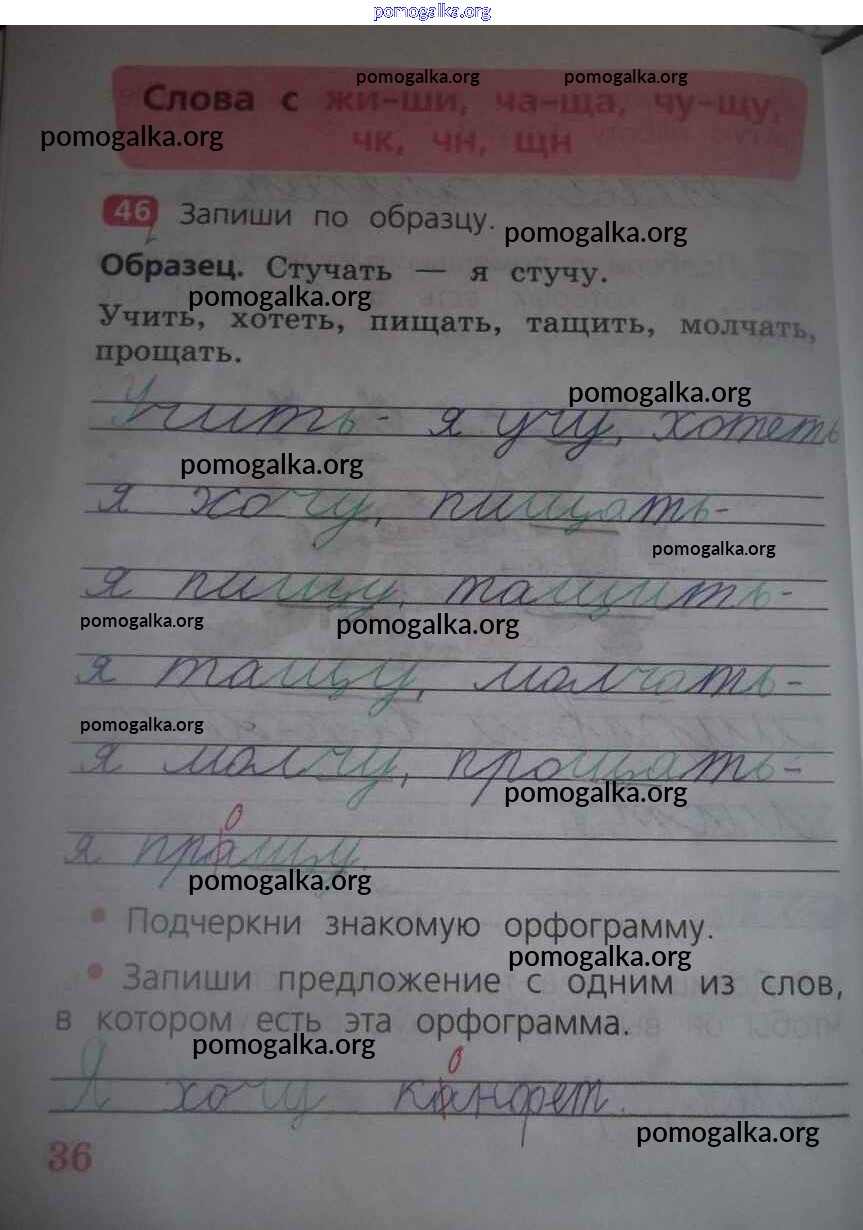 pomogalka.org
pomogalka.org pomogalka.org
Слова с жи–ши, ча–ща, чу–щу,
pomogalka.org
чк, чн, щн
46 Запиши по образцу.
pomogalka.org
Образец. Стучать — я стучу.
pomogalka.org
Учить, хотеть, пищать, тащить, молчать,
прощать.
pomogalka.org
Учить - я учу, хотеть
pomogalka.org
я хочу, пищать-
pomogalka.org
я пищу, тащить-
pomogalka.org pomogalka.org
я тащу, молчать-
pomogalka.org
я молчу, прощать-
pomogalka.org
о
я пращу
pomogalka.org
• Подчеркни знакомую орфограмму.
pomogalka.org
• Запиши предложение с одним из слов,
в котором есть эта орфограмма.
pomogalka.org
о
Я хочу канфет.
pomogalka.org
36